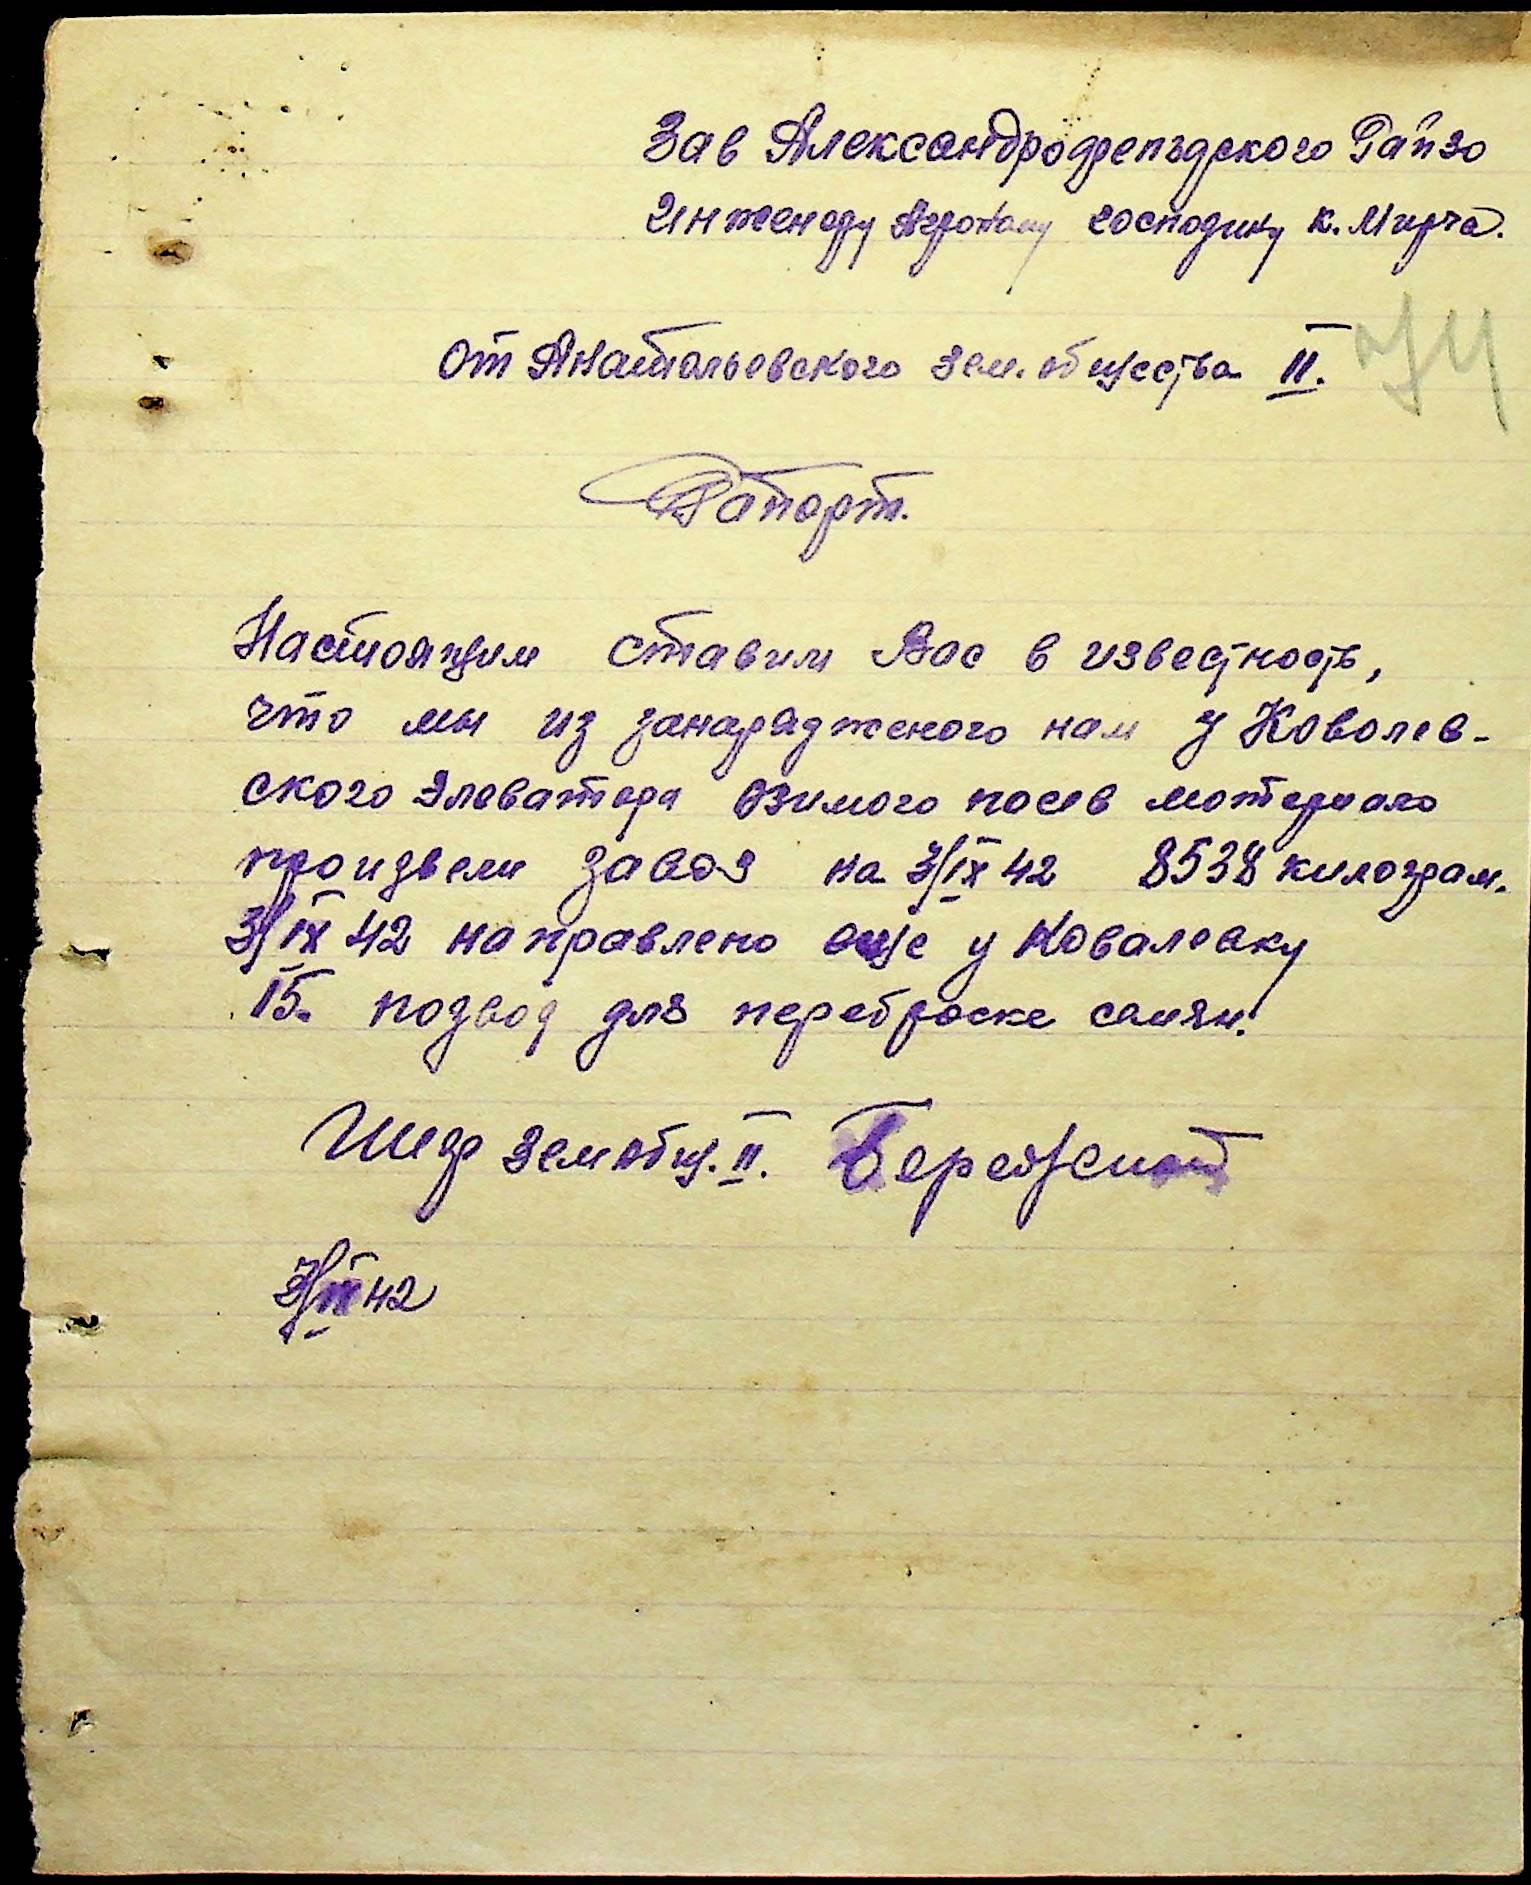 Зав Александрофельдского Райзо
Инженеру Агроному господину К. Мирча.
74
от Анатольевского зем. общества II.
Рапорт.
Настоящим ставим Вас в известность,
что мы из занарядженого нам у Коволев-
ского Элеватора озимого посев мотериало
произвели завоз на 3/IX 42 8538 килограм.
3/IX 42 направлено еще у Ковалевку
15. подвод для переброске семян.
Шеф Земобщ. II.
3/IX 42